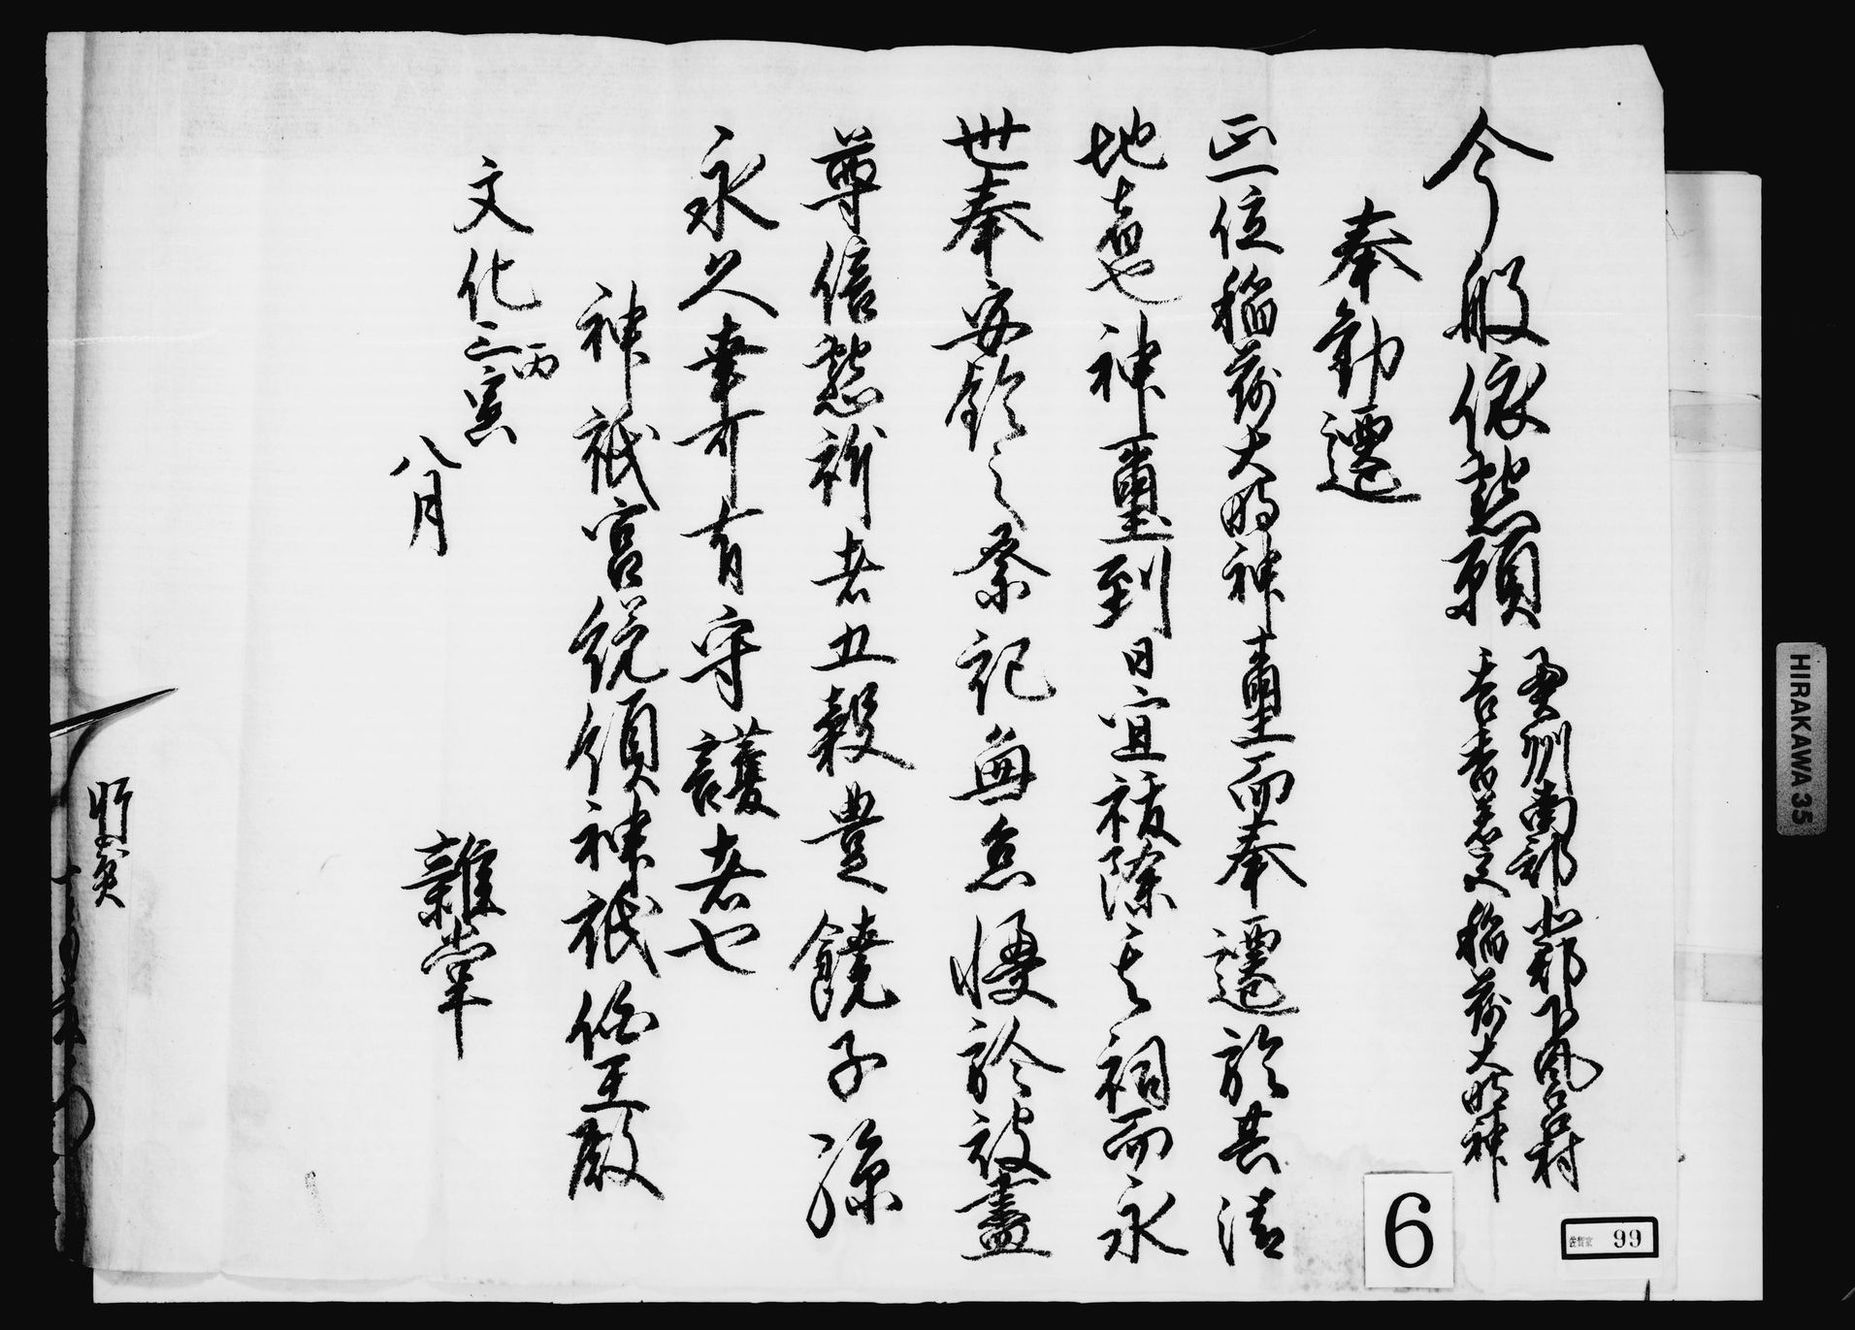 今般依懇願
奥州南部北郡下風呂村
吉吉善之稲荷大明神
奉勧遷
正一位稲荷大明神璽而奉遷於其清
地者也神璽到日宜祓除其祠而永
世奉安鎮之祭祀無怠慢於被盡
尊信懇祈者五穀豊饒子孫
永久幸可有守護者也
神祇官統領神祇伯王殿
文化三丙寅
八月
雑掌
6
99
HIRAKAWA 35